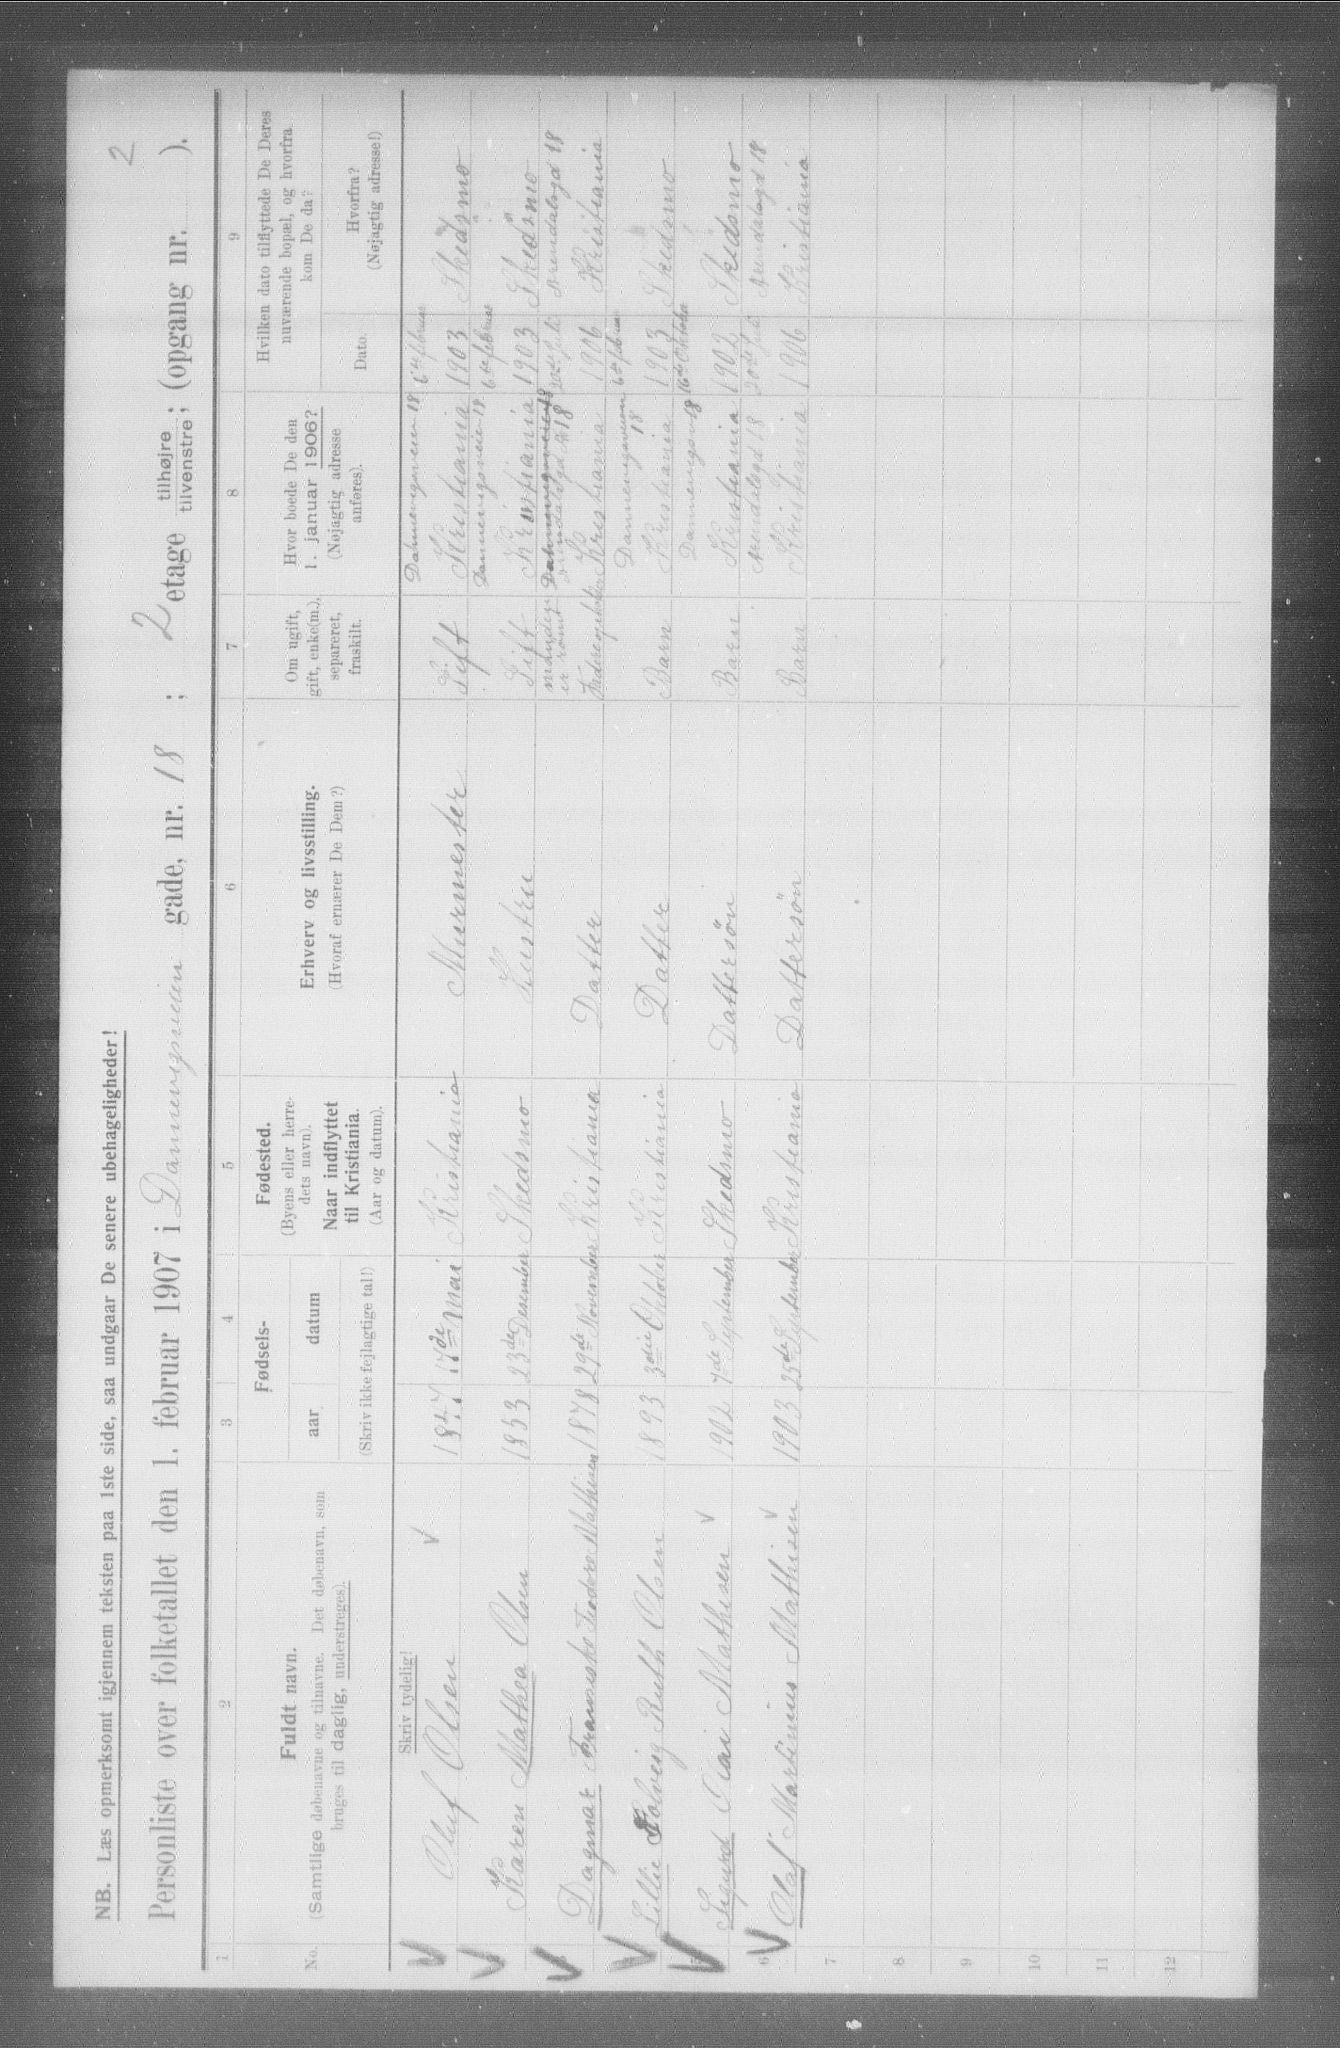 NB. Læs opmerksomt igjennem teksten paa 1ste side, saa undgaar De senere ubehageligheder!
2
Personliste over folketallet den 1. februar 1907 i Dannevigsveien gade, nr. 18; 2 etage tilhøjre tilvenstre; (opgang nr. ).
1 2 3 4 5 6 7 8 9
No.
Fuldt navn.
(Samtlige døbenavne og tilnavne. Det døbenavn, som
bruges til daglig, understreges).
Fødsels-
aar datum
(Skriv ikke fejlagtige tal!)
Fødested.
(Byens eller herre-
dets navn).
Naar indflyttet
til Kristiania.
(Aar og datum).
Erhverv og livsstilling.
(Hvoraf ernærer De Dem?)
Om ugift,
gift, enke(m.),
separeret,
fraskilt.
Hvor boede De den
1. januar 1906?
(Nøjagtig adresse
anføres).
Hvilken dato tilflyttede De Deres
nuværende bopæl, og hvorfra
kom De da?
Dato.
Hvorfra?
(Nøjagtig adresse!)
Skriv tydelig!
Dannevigsveien 18 6te februar
Oluf Olsen 17de Mai Kristiania Murmester Gift Kristiania 1903 Skedsmo
Dannevigsveien 18 6te februar
Karen Mathea Olsen 1853 23de Desember Skedsmo Hustru Gift Kristiania 1903 Skedsmo
manden er Arendalsgd 18 20de Arendalsgd 18
Dagmar Fransiska Teodora Mathisen 1878 29de November Kristiania Datter Kristiania 1906 Kristiania
Dannevigsveien 18 6te februar
Lillie Solveig Ruth Olsen 1893 3die Oktober Kristiania Datter Barn Kristiania 1903 Skedsmo
Dannevigsv 18 16de Oktober
Sigurd Mathisen 1902 7de September Skedsmo Dattersön Barn Kristiania 1902 Skedsmo
Arendalsgd 18 20de Arendalsgd 18
Olaf Martinius Mathisen 1903 25de September Kristiania Dattersön Barn Kristiania 1906 Kristiania
6
7
8
9
10
11
12